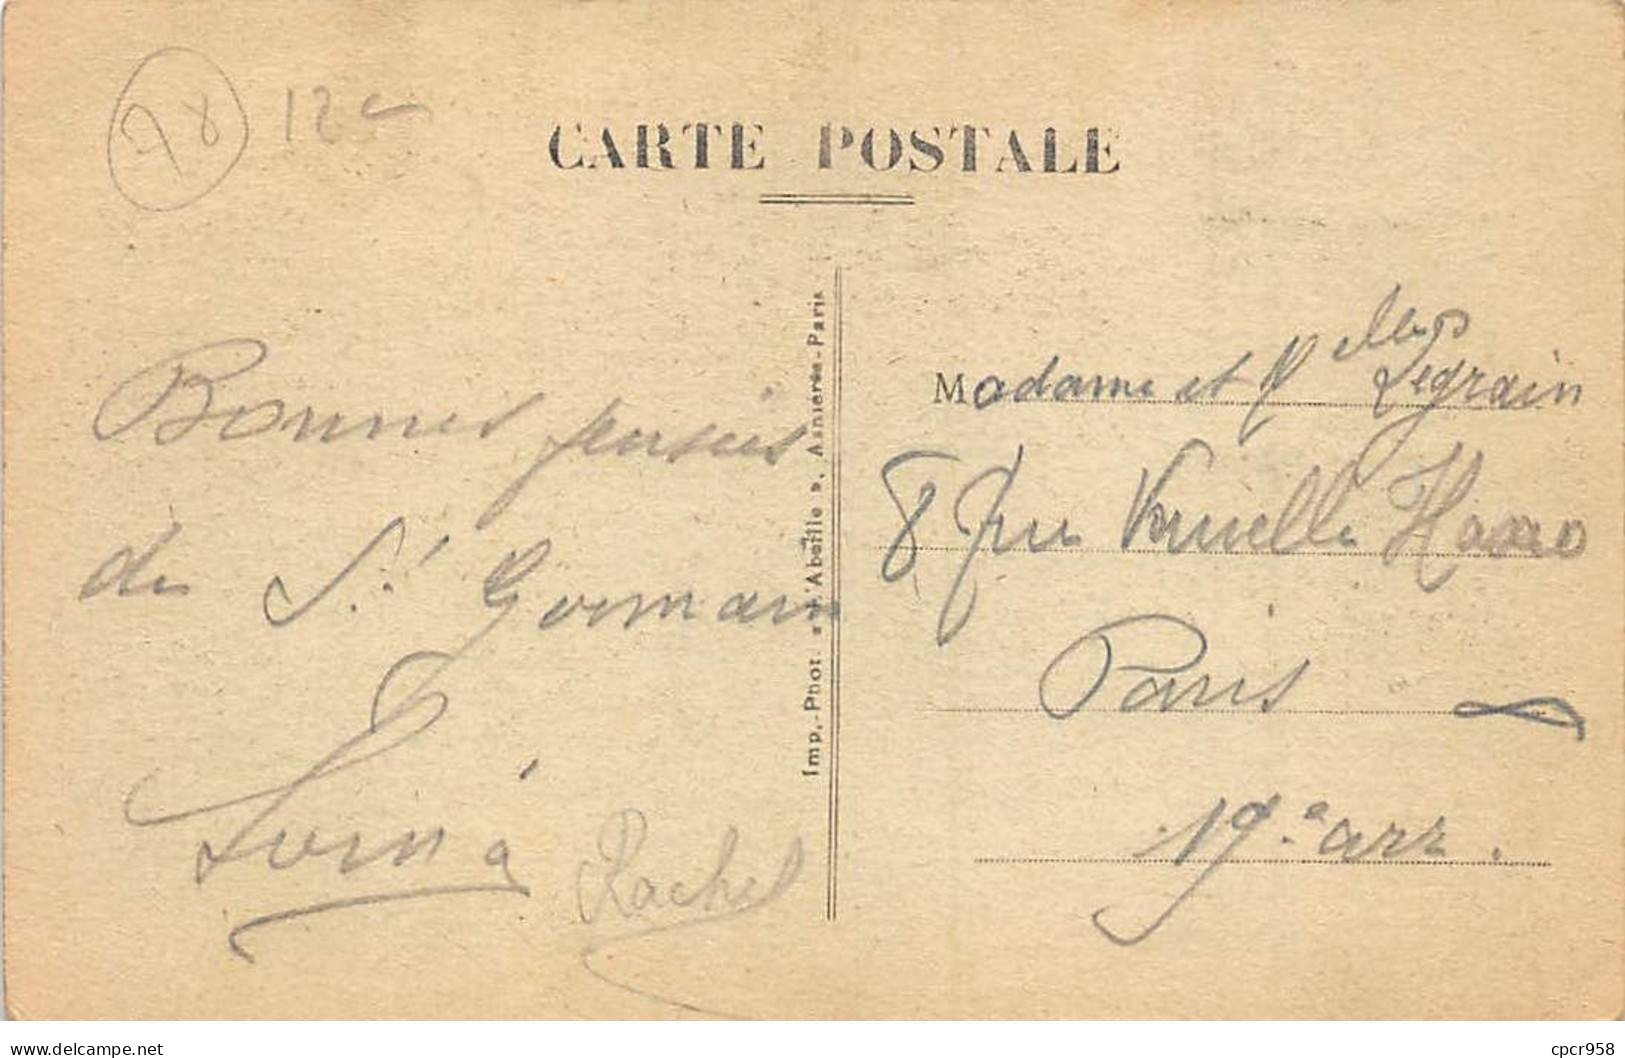 78 12
CARTE POSTALE
Imp.-Phot. « l'Abeille », Asnières-Paris
Bonnes pensées
de St Germain
Rachel
Madame et Melles
Legrain
8 rue
Paris
19e arr.
delcampe.net
cpcr958